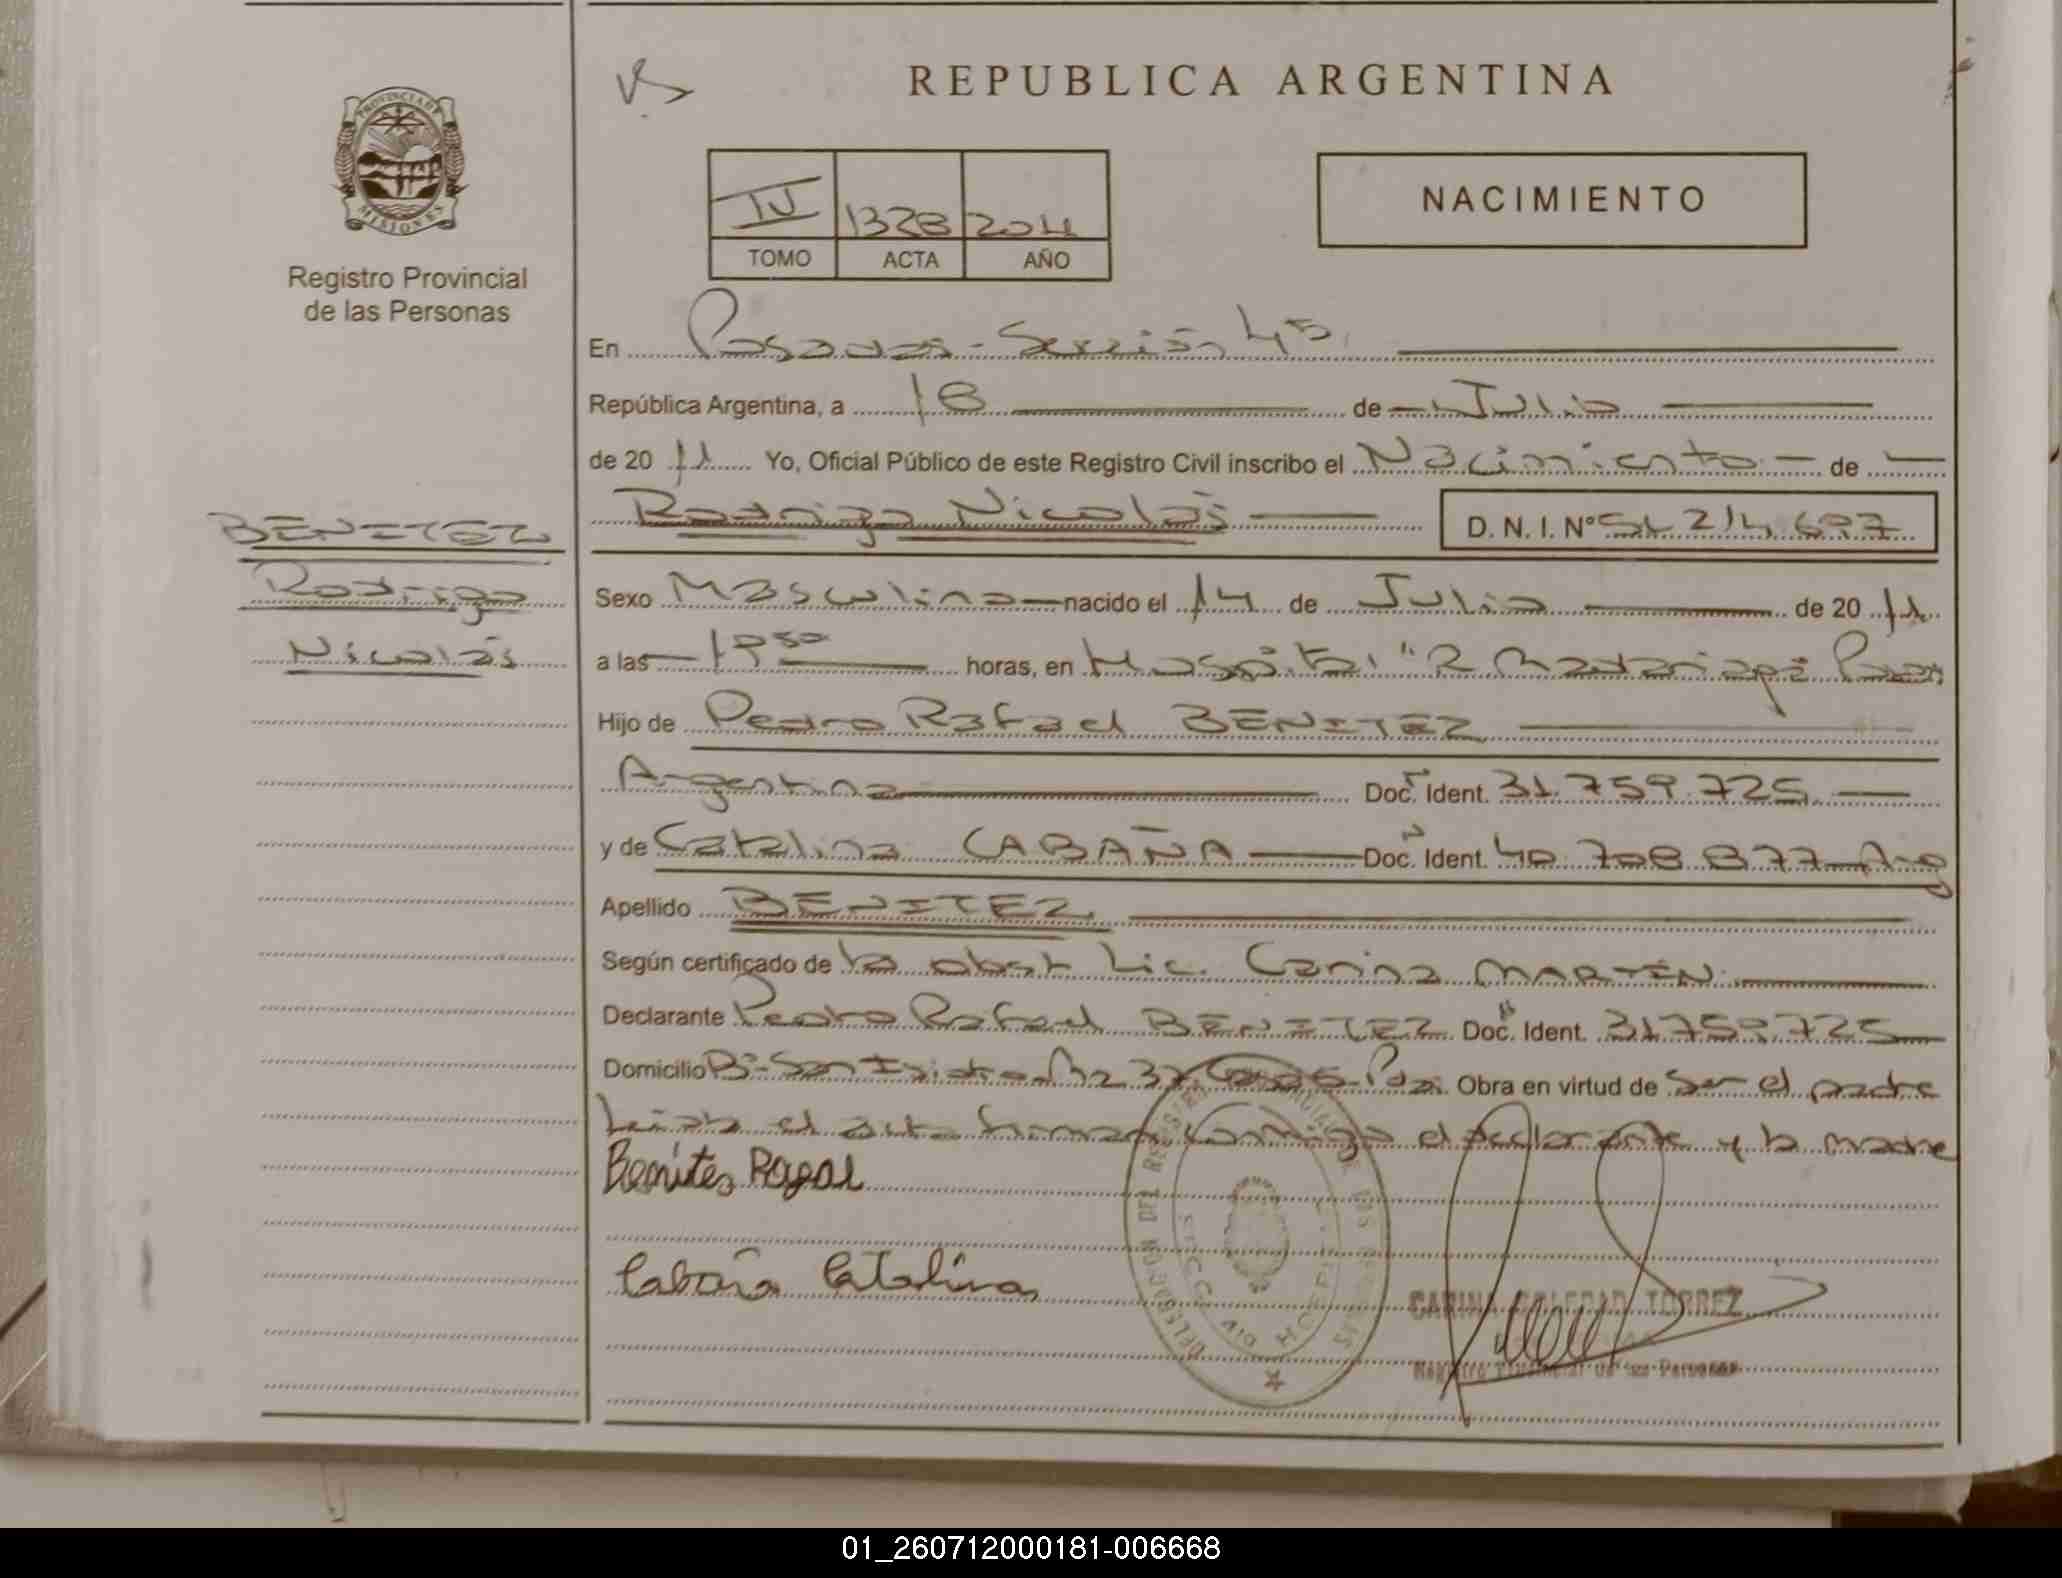 REPUBLICA ARGENTINA
PROVINCIA DE
MISIONES
Registro Provincial
de las Personas
IV 1328 2011
TOMO ACTA AÑO
NACIMIENTO
En Posadas - Sección 4ª
República Argentina, a 18 de Julio
de 20 11 Yo, Oficial Público de este Registro Civil inscribo el Nacimiento de
Rodrigo Nicolás D. N. I. N° 51.214.697
BENITEZ
Rodrigo
Nicolás
Sexo Masculino nacido el 14 de Julio de 20 11
a las horas, en Hospital "R Madariaga"
Hijo de Pedro Rafael BENITEZ
Argentina Doc. Ident. 31.759.725
y de Catalina CABAÑA Doc. Ident. 40.708.877 Arg
Apellido BENITEZ
Según certificado de la obst Lic. Carina MARTIN
Declarante Pedro Rafael BENITEZ Doc. Ident. 31759.725
Domicilio Bº San Isidro Mz 37 Obra en virtud de ser el padre
Leída el acta firman conmigo el declarante y la madre
Benites Rafael
Cabaña Catalina
DELEGACION DEL REGISTRO PROVINCIAL DE LAS PERSONAS
CARINA SOLEDAD TORREZ
Registro Provincial de las Personas
01_260712000181-006668